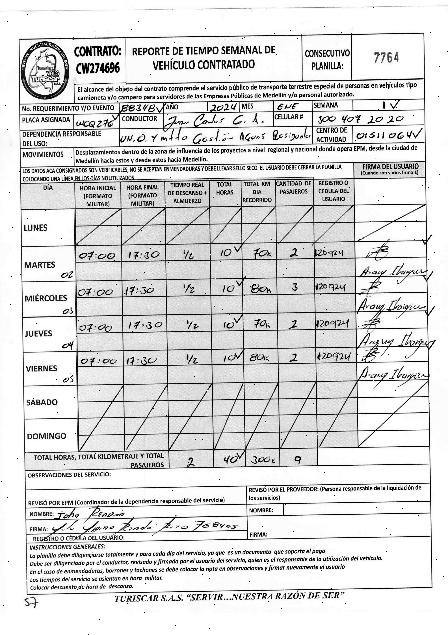 CONTRATO: CW274696
REPORTE DE TIEMPO SEMANAL DE VEHÍCULO CONTRATADO
CONSECUTIVO PLANILLA:
7764
El alcance del objeto del contrato comprende el servicio público de transporte terrestre especial de personas en vehículos tipo camioneta y/o campero para servidores de las Empresas Públicas de Medellín y/o personal autorizado.
No. REQUERIMIENTO Y/O EVENTO AÑO 2024 MES ENE SEMANA 1
PLACA ASIGNADA WCQ276 CONDUCTOR Juan Carlos G. A. CELULAR # 300 407 20 20
DEPENDENCIA RESPONSABLE DEL USO: UN.O y Mtto Gestión Aguas Residuales CENTRO DE ACTIVIDAD
MOVIMIENTOS Desplazamientos dentro de la zona de influencia de los proyectos a nivel regional y nacional donde opera EPM, desde la ciudad de Medellín hacia estos y desde estos hacia Medellín.
LOS DATOS ACA CONSIGNADOS SON VERIFICABLES, NO SE ACEPTAN ENMENDADURAS Y DEBE LLEVAR SELLO SECO. EL USUARIO DEBE CERRAR LA PLANILLA COLOCANDO UNA LÍNEA EN LOS DÍAS NO UTILIZADOS.
FIRMA DEL USUARIO
DÍA HORA INICIAL (FORMATO MILITAR) HORA FINAL (FORMATO MILITAR) TIEMPO REAL DE DESCANSO + ALMUERZO TOTAL HORAS TOTAL KM DIA RECORRIDO CANTIDAD DE PASAJEROS REGISTRO O CÉDULA DEL USUARIO
LUNES
MARTES 02 07:00 17:30 1/2 10 70k 2
MIÉRCOLES 03 07:00 17:30 1/2 10 80k 3
JUEVES 04 07:00 17:30 1/2 10 70k 2
VIERNES 05 07:00 17:30 1/2 10 80k 2
SÁBADO
DOMINGO
TOTAL HORAS, TOTAL KILOMETRAJE Y TOTAL PASAJEROS 2 40 300k 9
OBSERVACIONES DEL SERVICIO:
REVISÓ POR EPM (Coordinador de la dependencia responsable del servicio)
REVISÓ POR EL PROVEEDOR: (Persona responsable de la liquidación de los servicios)
NOMBRE: John Rendón
NOMBRE:
FIRMA:
FIRMA:
REGISTRO O CÉDULA DEL USUARIO
INSTRUCCIONES GENERALES:
La planilla debe diligenciarse totalmente y para cada día del servicio, ya que es un documento que soporta el pago
Debe ser diligenciada por el conductor, revisada y firmada por el usuario del servicio, quien es el responsable de la utilización del vehículo.
En el caso de enmendaduras, borrones y tachones se debe colocar la nota en observaciones y firmar nuevamente el usuario
Los tiempos del servicio se asientan en hora militar.
Colocar descuento de hora de descanso.
57
TURISCAR S.A.S. "SERVIR...NUESTRA RAZÓN DE SER"